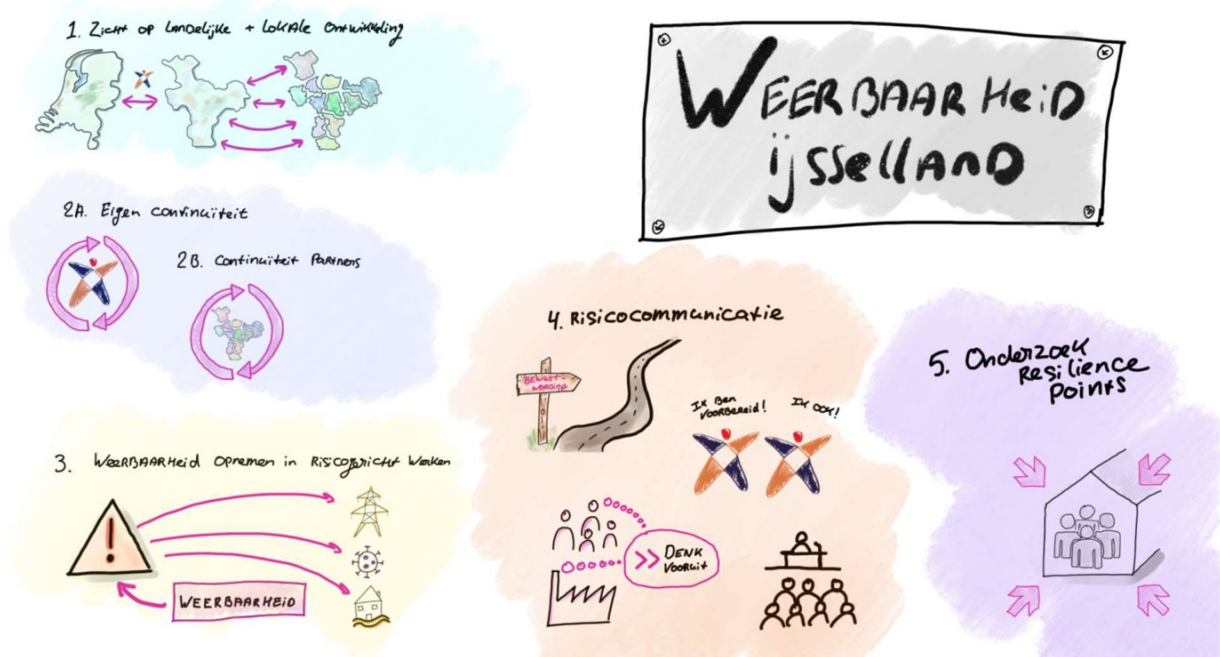 1. Zicht op Landelijke + Lokale Ontwikkeling
WEERBAARHEID
ijsselland
2A. Eigen continuïteit
2B. Continuïteit Partners
3. Weerbaarheid opnemen in Risicogericht Werken
WEERBAARHEID
4. Risicocommunicatie
BEWUST-
WORDING
Ik ben
VOORBEREID!
Ik ook!
>> DENK
VOORUIT
5. Onderzoek
Resilience
Points